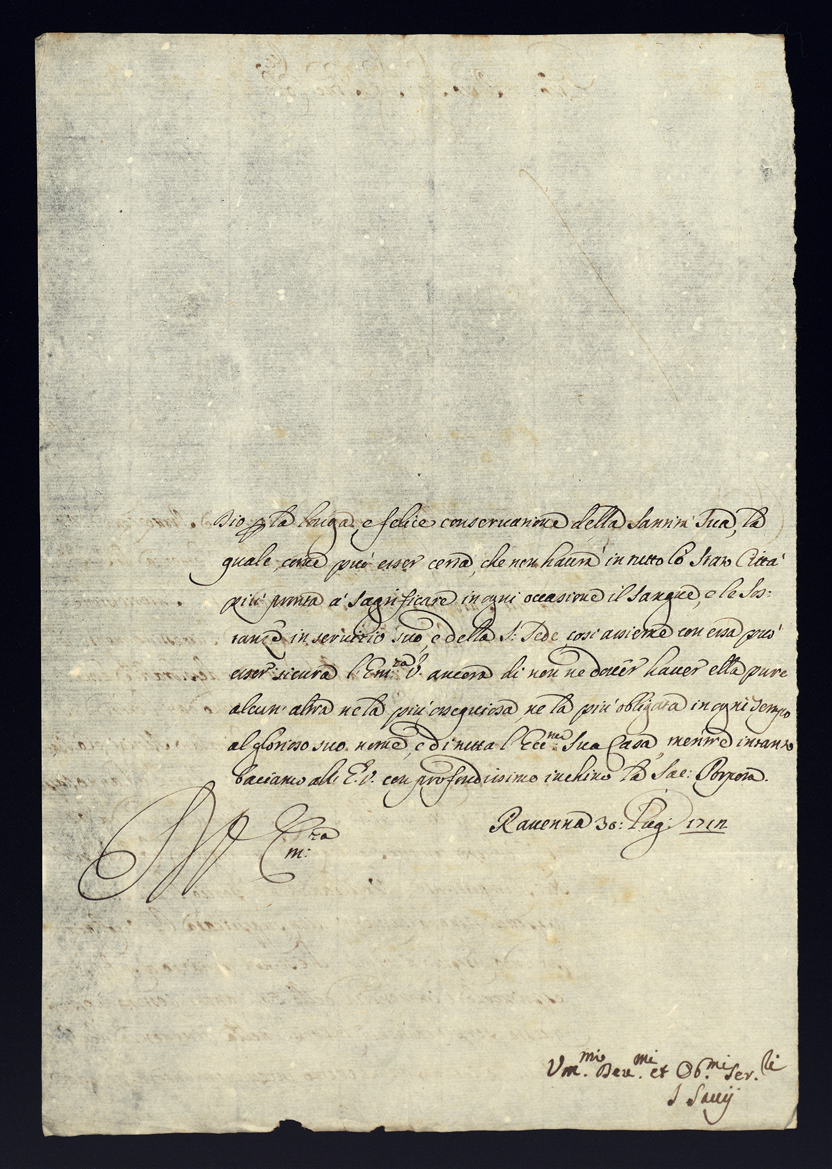 Dio p la longa, e felice conseruatione della Santità Sua, la
quale, come può esser certa, che non haurà in tutto lo Stato Città
più pronta à Sagrificare in ogni occasione il Sangue, e le Sos:
tanze in seruitio suo, e della S: Sede così assieme con essa può
esser sicura l'Em:za V. ancora di non ne douer hauer ella pure
alcun'altra ne la più ossequiosa ne la più obligata in ogni tempo
al glorioso suo nome, e di tutta l'Ecc:ma Sua Casa mentre intanto
bacciamo all' E.V. con profondissimo inchino la Sac: Porpora.
Rauenna 30: Lug: 1717
Em:za
Vm:mi Deu:mi et Ob:mi Ser:li
I Sauij